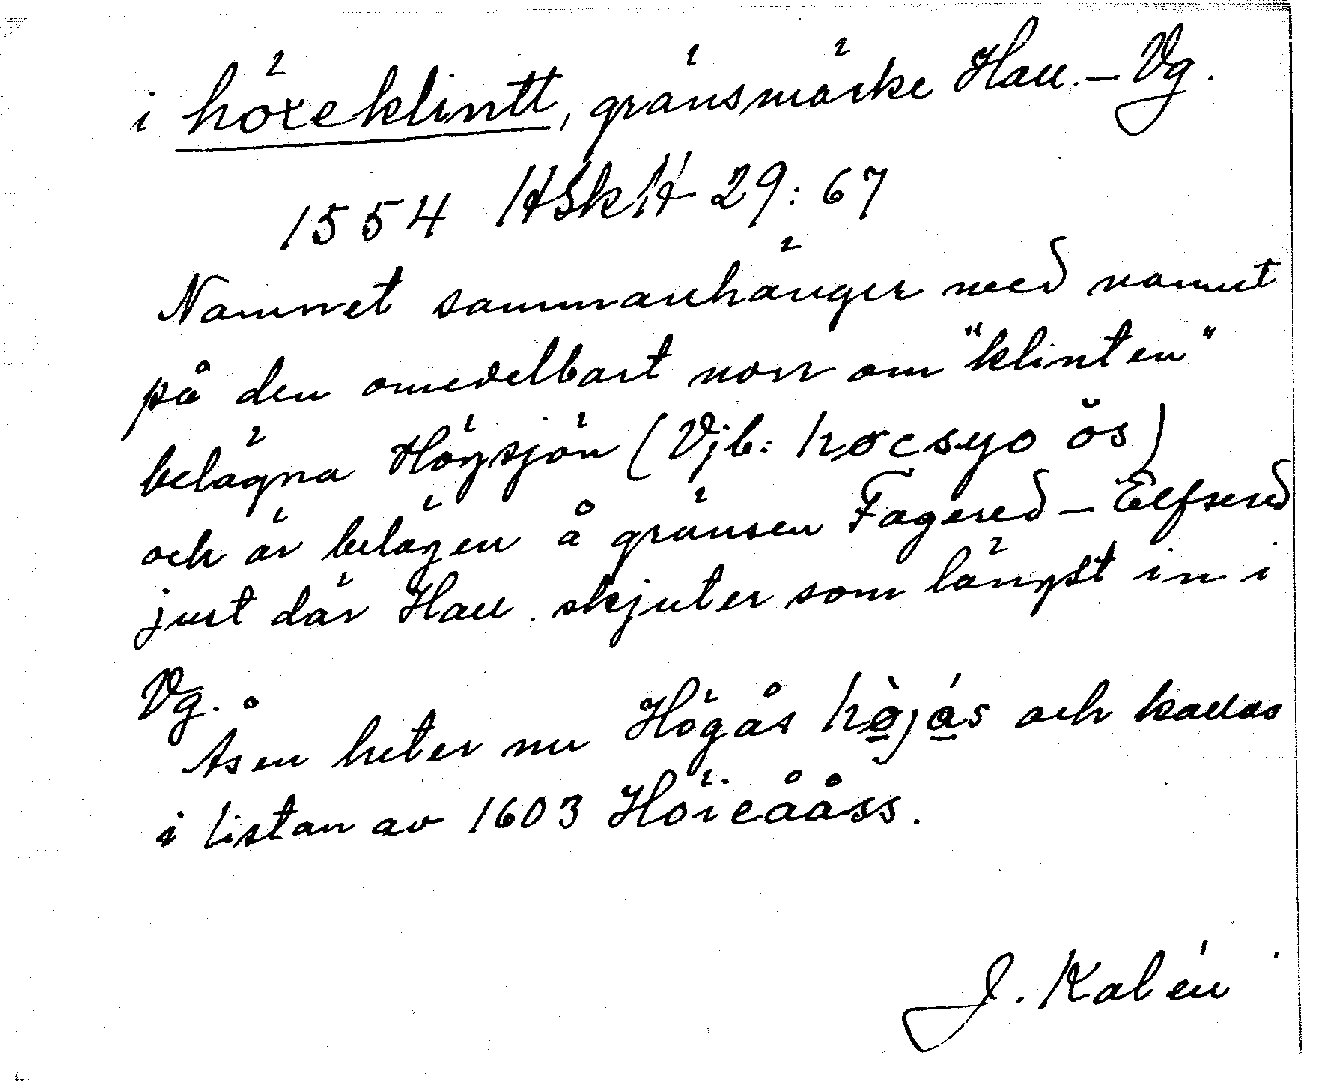 i höreklintt, gränsmärke Hall. – Vg.
1554 HSkH 29:67
Namnet sammanhänger med namnet
på den omedelbart norr om "klinten"
belägna Högsjön (Vjb: høcsyo ös)
och är belägen å gränsen Fagered – Elfsered
just där Hall. skjuter som längst in i
Vg.
Åsen heter nu Högås hø̀jás och kallas
i listan av 1603 Höieååss.
J. Kalén